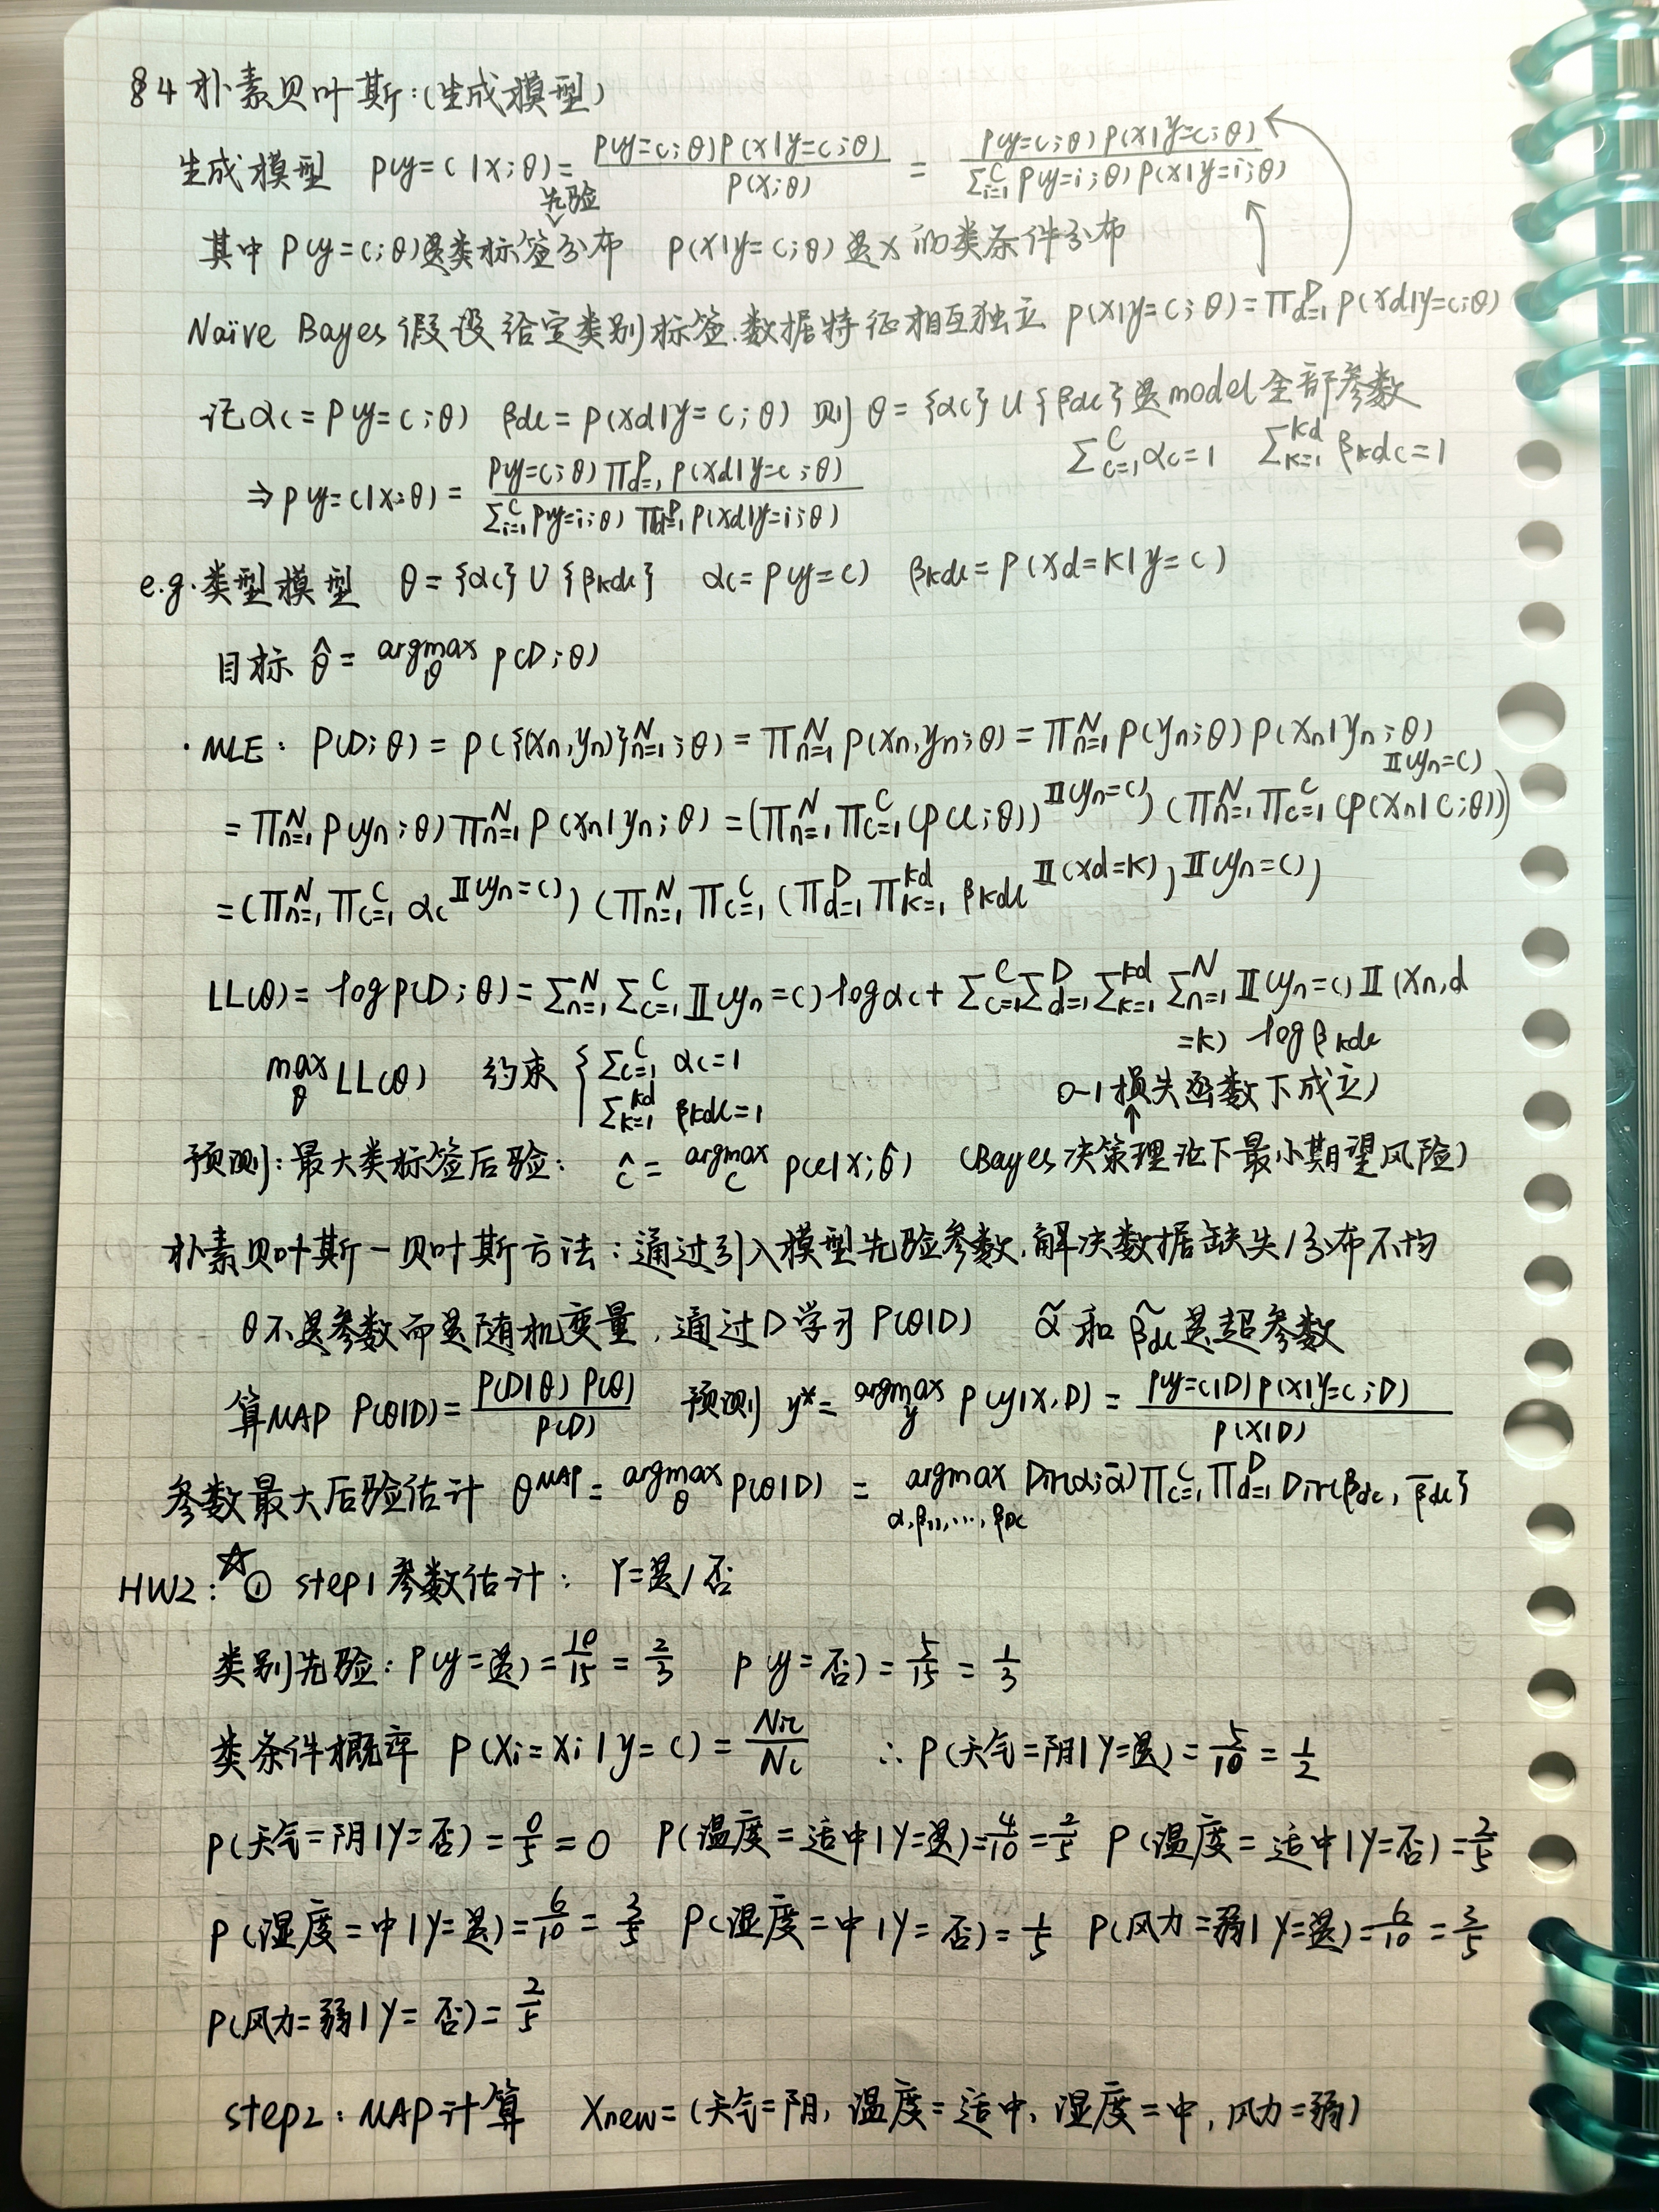 §4 朴素贝叶斯:(生成模型)
生成模型 p(y=c|x;θ)= p(y=c;θ)p(x|y=c;θ) / p(x;θ) = p(y=c;θ)p(x|y=c;θ) / Σ_{i=1}^C p(y=i;θ)p(x|y=i;θ)
先验
其中 p(y=c;θ)是类标签分布 p(x|y=c;θ)是x的类条件分布
Naïve Bayes 假设给定类别标签.数据特征相互独立 p(x|y=c;θ)=Π_{d=1}^D p(xd|y=c;θ)
记αc=p(y=c;θ) βdc=p(xd|y=c;θ) 则θ={αc}∪{βdc}是model全部参数
Σ_{c=1}^C αc=1 Σ_{k=1}^{kd} βkdc=1
⇒p(y=c|x;θ)= p(y=c;θ)Π_{d=1}^D p(xd|y=c;θ) / Σ_{i=1}^C p(y=i;θ)Π_{d=1}^D p(xd|y=i;θ)
e.g.类型模型 θ={αc}∪{βkdc} αc=p(y=c) βkdc=p(xd=k|y=c)
目标 θ̂= argmax_θ p(D;θ)
·MLE: p(D;θ)=p({(xn,yn)}_{n=1}^N;θ)=Π_{n=1}^N p(xn,yn;θ)=Π_{n=1}^N p(yn;θ)p(xn|yn;θ)
=Π_{n=1}^N p(yn;θ)Π_{n=1}^N p(xn|yn;θ)=(Π_{n=1}^N Π_{c=1}^C (p(c;θ))^{𝕀(yn=c)})(Π_{n=1}^N Π_{c=1}^C (p(xn|c;θ))^{𝕀(yn=c)})
=(Π_{n=1}^N Π_{c=1}^C αc^{𝕀(yn=c)})(Π_{n=1}^N Π_{c=1}^C (Π_{d=1}^D Π_{k=1}^{kd} βkdc^{𝕀(xd=k)})^{𝕀(yn=c)})
LL(θ)=log p(D;θ)=Σ_{n=1}^N Σ_{c=1}^C 𝕀(yn=c)log αc+Σ_{c=1}^C Σ_{d=1}^D Σ_{k=1}^{kd} Σ_{n=1}^N 𝕀(yn=c)𝕀(xn,d
=k) log βkdc
max_θ LL(θ) 约束 { Σ_{c=1}^C αc=1
Σ_{k=1}^{kd} βkdc=1
0-1损失函数下成立)
预测:最大类标签后验: ĉ= argmax_c p(c|x;θ̂) (Bayes决策理论下最小期望风险)
朴素贝叶斯-贝叶斯方法:通过引入模型先验参数.解决数据缺失/分布不均
θ不是参数而是随机变量.通过D学习P(θ|D) α̃和β̃dc是超参数
算MAP P(θ|D)= P(D|θ)P(θ) / P(D) 预测 y*= argmax_y p(y|x,D)= p(y=c|D)p(x|y=c;D) / p(x|D)
参数最大后验估计 θ^{MAP}= argmax_θ P(θ|D) = argmax_{α,β11,…,βDC} Dir(α;ᾱ)Π_{c=1}^C Π_{d=1}^D Dir(βdc, β̄dc}
HW2:☆① step1参数估计: Y=是/否
类别先验:P(y=是)=10/15=2/3 p(y=否)=5/15=1/3
类条件概率 p(Xi=xi|y=c)=Nic/Nc ∴p(天气=阴|Y=是)=5/10=1/2
p(天气=阴|Y=否)=0/5=0 p(温度=适中|Y=是)=4/10=2/5 p(温度=适中|Y=否)=2/5
p(湿度=中|Y=是)=6/10=3/5 p(湿度=中|Y=否)=1/5 p(风力=弱|Y=是)=6/10=3/5
p(风力=弱|Y=否)=2/5
step2:MAP计算 Xnew=(天气=阴,温度=适中,湿度=中,风力=弱)